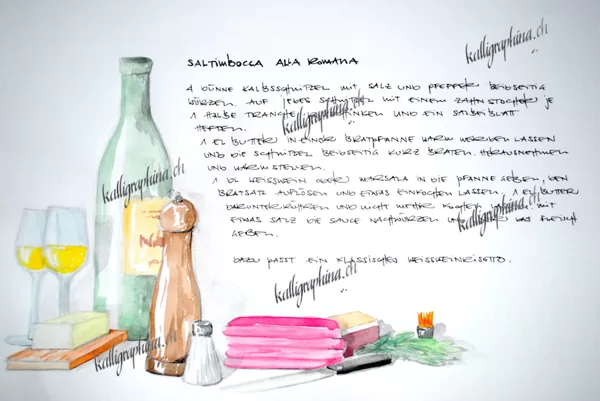 kalligraphina.ch
SALTIMBOCCA ALLA ROMANA
4 DÜNNE KALBSSCHNITZEL MIT SALZ UND PFEFFER BEIDSEITIG
WÜRZEN. AUF JEDES SCHNITZEL MIT EINEM ZAHNSTOCHER JE
1 HALBE TRANCHE SCHINKEN UND EIN SALBEIBLATT
kalligraphina.ch
HEFTEN.
1 EL BUTTER IN EINER BRATPFANNE WARM WERDEN LASSEN
UND DIE SCHNITZEL BEIDSEITIG KURZ BRATEN, HERAUSNEHMEN
UND WARMSTELLEN.
kalligraphina.ch
1 DL WEISSWEIN ODER MARSALA IN DIE PFANNE GEBEN, DEN
BRATSATZ AUFLÖSEN UND ETWAS EINKOCHEN LASSEN, 1 EL BUTTER
DARUNTERRÜHREN UND NICHT MEHR KOCHEN MIT
kalligraphina.ch
ETWAS SALZ DIE SAUCE NACHWÜRZEN UND DAS FLEISCH
GEBEN.
DAZU PASST EIN KLASSISCHES WEISSWEINRISOTTO.
kalligraphina.ch
kalligraphina.ch